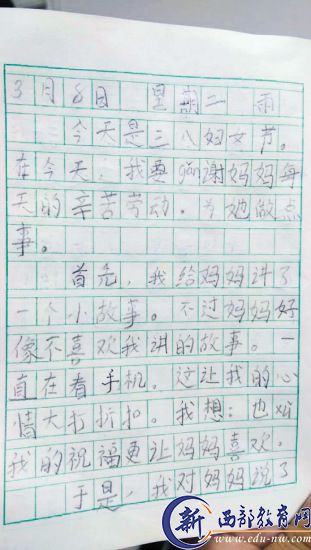 3月8日 星期二 雨
今天是三八妇女节。
在今天，我要gǎn谢妈妈每
天的辛苦劳动。为她做点
事。
首先，我给妈妈讲了
一个小故事。不过妈妈好
像不喜欢我讲的故事。一
直在看手机。这让我的心
情大打折扣。我想：也
我的祝福更让妈妈喜欢。
于是，我对妈妈说了
新 西部教育网
www.edu-nw.com